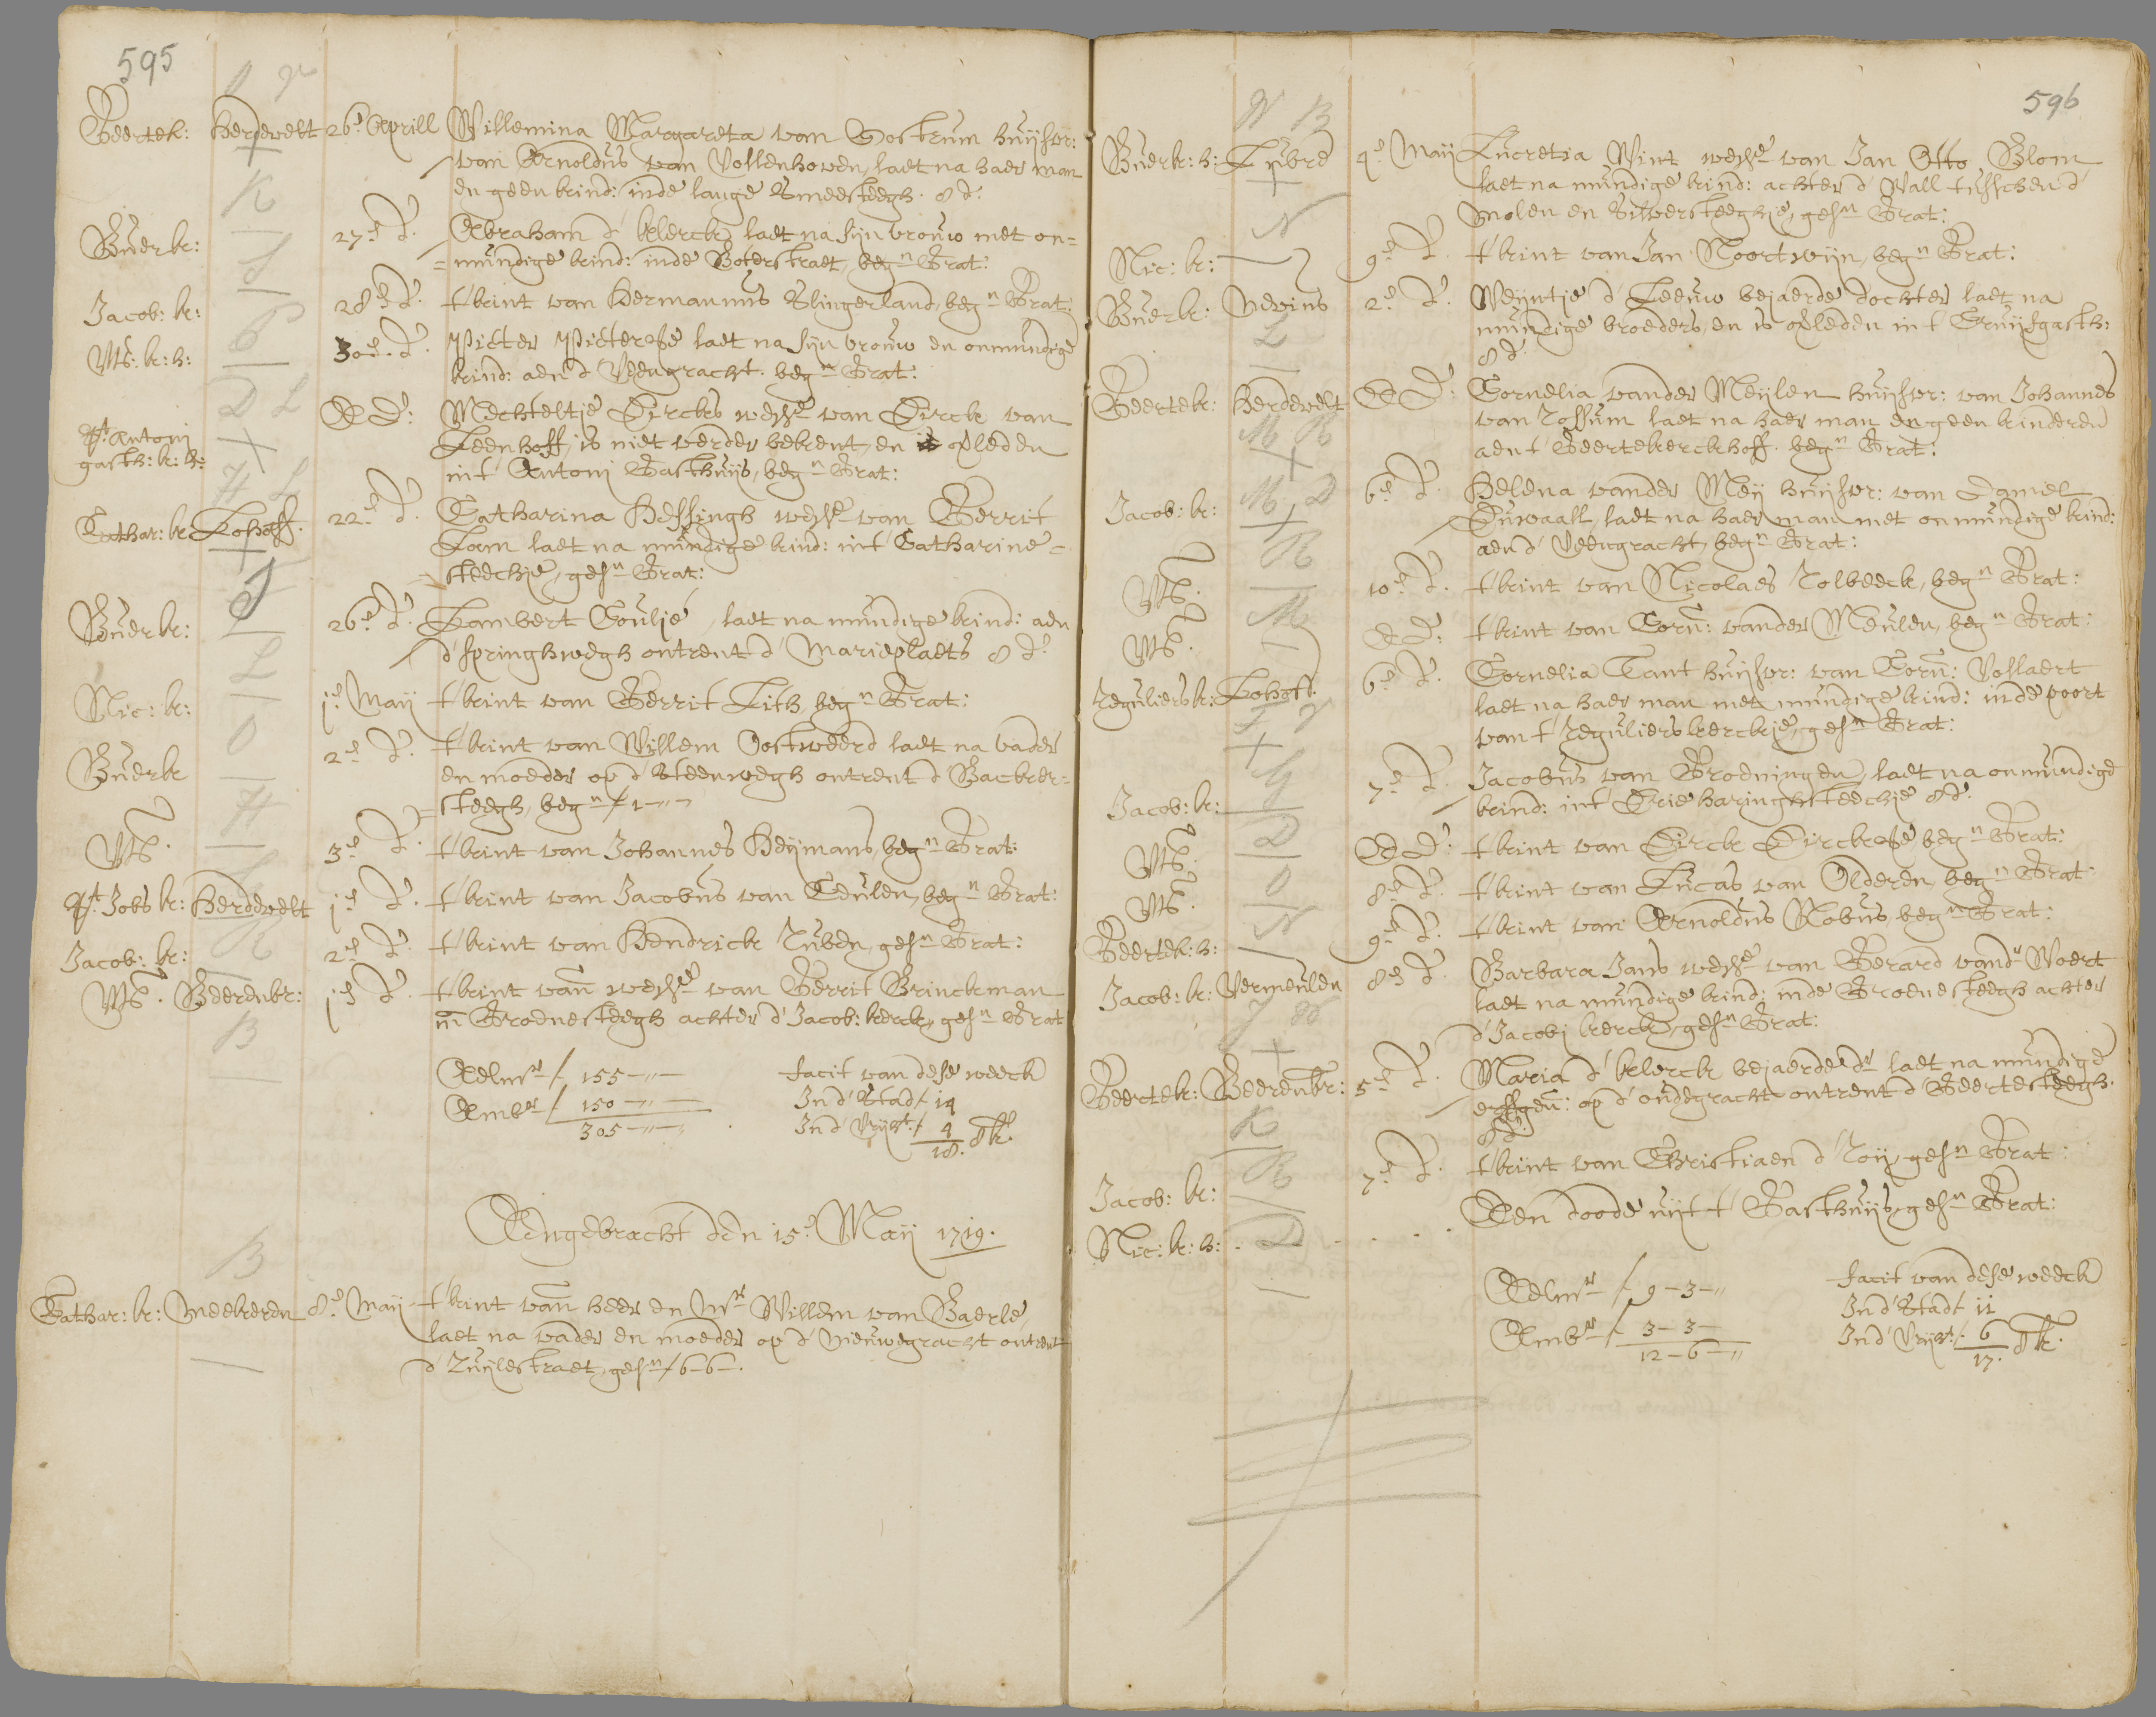 595
Geertek: Herdevelt 26e Aprill Willemina Margareta van Oostrum huijsvr:
van Arnoldus van Vollenhoven, laet na haer man
en geen kind: inde lange Smeesteegh. 8 d.
Buerk: 27e d. Abraham d' klerck, laet na sijn vrouw met on=
=mundige kind: inde Boterstraet, begn Grat:
Jacob: k: 28e d. t'kint van Hermannus Slingerland, begn Grat:
k: h: 30e d. Pieter Pieterse laet na sijn vrouw en onmundige
kind: aen d' Veengracht. begn Grat:
St. Antoni
gasth: k: h: D D L Mechteltje Dircks wede van Dirck van
Leenhoff, is niet verder bekent, en is opleden
int Antoni Gasthuijs, begn Grat:
Cathar: k: Lohoff. 22e d. Catharina Hessingh wede van Gerrit
Lam laet na mundige kind: int Catharine=
=steechje, gesn Grat:
Buerk: 26e d. Lambert Goulje, laet na mundige kind: aen
d' springhwegh ontrent d' Marieplaets 8 d.
Nic: k: 1e Maij t'kint van Gerrit Lith, begn Grat:
Buerk 2e d. t'kint van Willem Oostweerd laet na vader
en moeder op d' Steenwegh ontrent d' Backer=
=steegh, begn f 1-"-"
3e d. t'kint van Johannes Heijmans, begn Grat:
St. Jobs k: Herdevelt 1e d. t'kint van Jacobus van Ceulen, begn Grat:
Jacob: k: 2e d. t'kint van Hendrick Ruben, gesn Grat:
Beerenbr: 1e d. t'kint van wede van Gerrit Brinckman
in Groenesteegh achter d' Jacob: kerck, gesn Grat
Aelmr f 155-"-
Ambr f 150-"-
305-"-"
facit van dese weeck
In d' Stad f 14
In d' Vrijht. f 4
18.
Aengebracht den 15e Maij 1719.
Cathar: k: Meekeren 8e Maij t'kint van heer en Mr Willem van Baerle,
laet na vader en moeder op d' Nieuwegracht ontrent
d' Zuijlestraet, gesn f 6-6-.
596
Buerk: h: Lubre 4e Maij Lucretia Wint wede van Jan Otto Blom
laet na mundige kind: achter d' Wall tusschen d'
Molen en Silversteeghje, gesn Grat:
Nic: k: 9e d. t'kint van Jan Noortwijn, begn Grat:
Buerk: Nevius 2e d. Weijntje d' Leeuw bejaerde dochter laet na
mundige broeders, en is opleden int Cruijsgasth:
8 d.
Geertek: Herdevelt D D: Cornelia vander Meijlen huijsvr: van Johannes
van Rossum laet na haer man en geen kinderen
aent Geertekerckhoff. begn Grat:
Jacob: k: 6e d. Helena vander Meij huijsvr: van Daniel
Duwaall, laet na haer man met onmundige kind:
aen d' Veengracht, begn Grat:
10e d. t'kint van Nicolaes Rolbeeck, begn Grat:
D D: t'kint van Corn: vander Meulen, begn Grat:
Reguliersk: Lohoff. 6e d. Cornelia Tant huijsvr: van Corn: Vossaert
laet na haer man met mundige kind: inde poort
van t' Reguliers kerckje, gesn Grat:
Jacob: k: 7e d. Jacobus van Groeningen, laet na onmundige
kind: int Drie haringhsteechje 8 d.
D D: t'kint van Dirck Dirckse, begn Grat:
8e d. t'kint van Lucas van Olderen, begn Grat
Geertek: h: 9e d. t'kint van Arnoldus Nobus, begn Grat:
Jacob: k: Vermeulen 8e d. Barbara Jans wede van Gerard vandr Voert
laet na mundige kind: inde Groenesteegh achter
d' Jacobj kerck, gesn Grat:
Geertek: Beerenbr: 5e d. Maria d' klerck bejaerde dr laet na mundige
erffgen: op d' oudegracht ontrent d' Geertesteegh.
8 d.
Jacob: k: 7e d. t'kint van Christiaen d' Roij, gesn Grat:
Nic: k: h: Een doode uijt t' Gasthuijs, gesn Grat:
Aelmr f 9-3-"
Ambr f 3-3-
12-6-"
facit van dese weeck
In d' Stadt 11
In d' Vrijht. f 6
17.